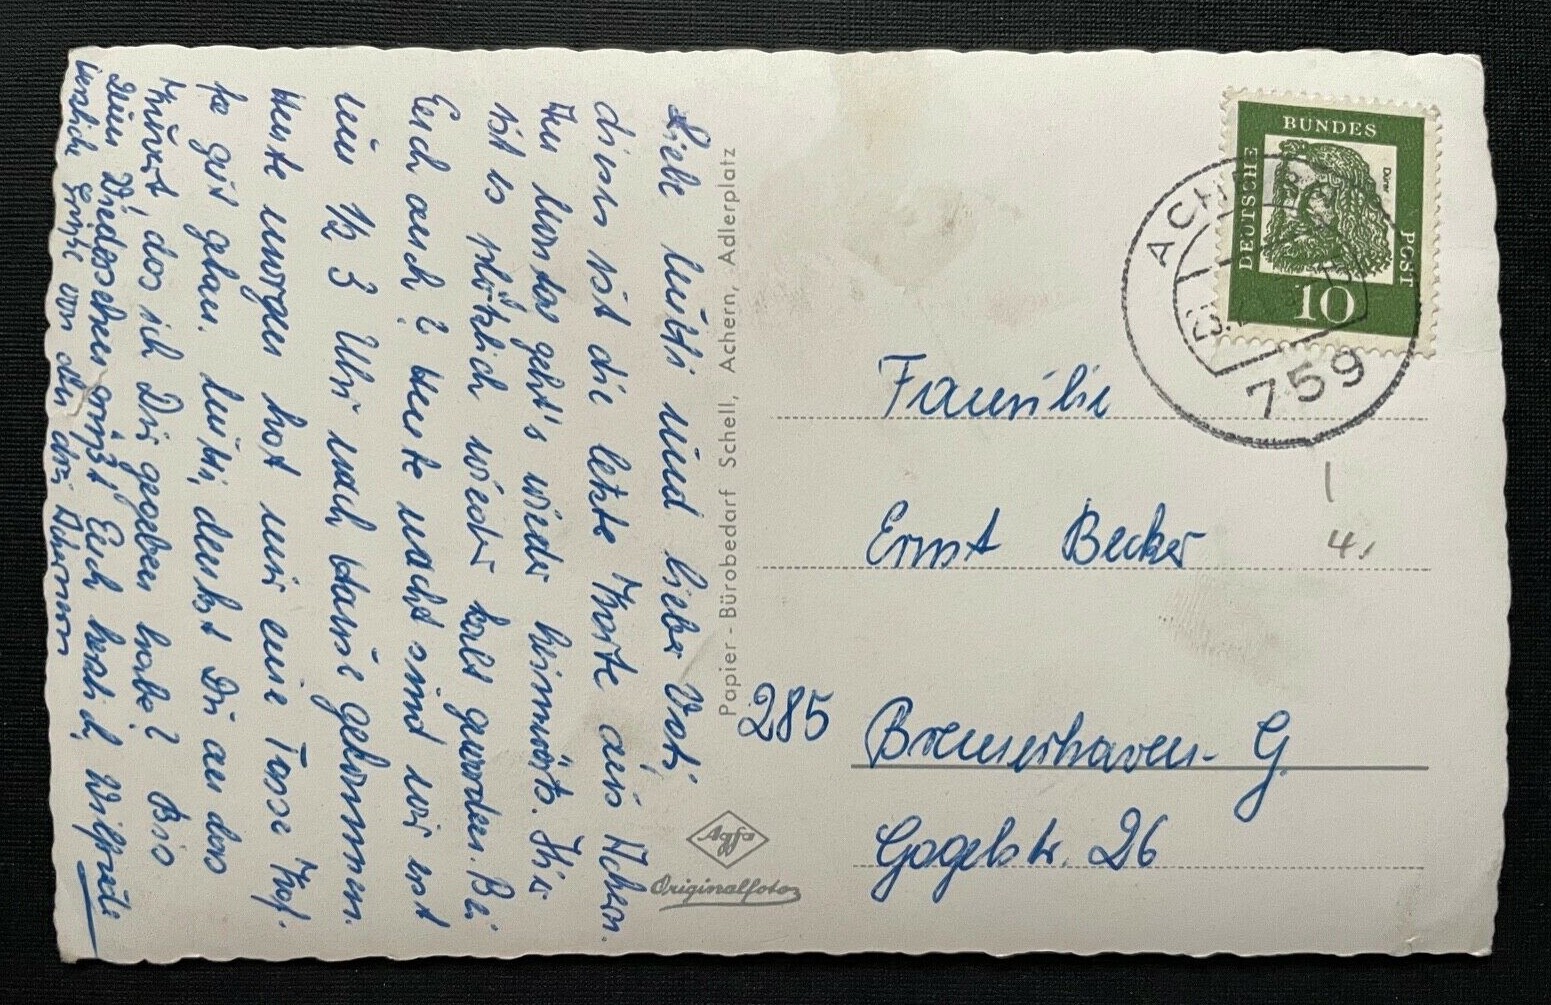 Liebe Mutti und lieber Vati,
dieses ist die letzte Karte aus Achern.
Am Montag geht's wieder heimwärts. Hier
ist es plötzlich wieder kalt geworden. Bei
Euch auch? Heute nacht sind wir erst
um ½ 3 Uhr nach Hause gekommen.
Heute morgen hat mir eine Tasse Kaf-
fe gut getan. Mutti, denkst Du an das
, das ich Dir gegeben habe? Bis
zum Wiedersehen grüßt Euch herzlich Wilfriede
herzliche Grüße von den drei
Papier - Bürobedarf Schell, Achern, Adlerplatz
Agfa
Originalfoto
DEUTSCHE BUNDES POST
Dürer
10
ACH
759
Familie
Ernst Becker
285 Bremerhaven - G.
Gogelstr. 26
1
4,